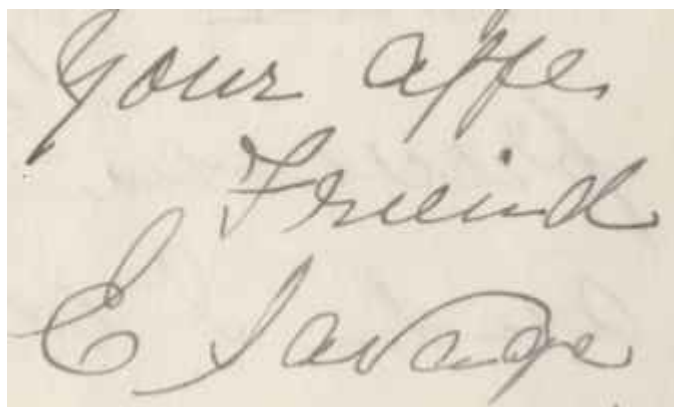 Your affe
Friend
E Savage